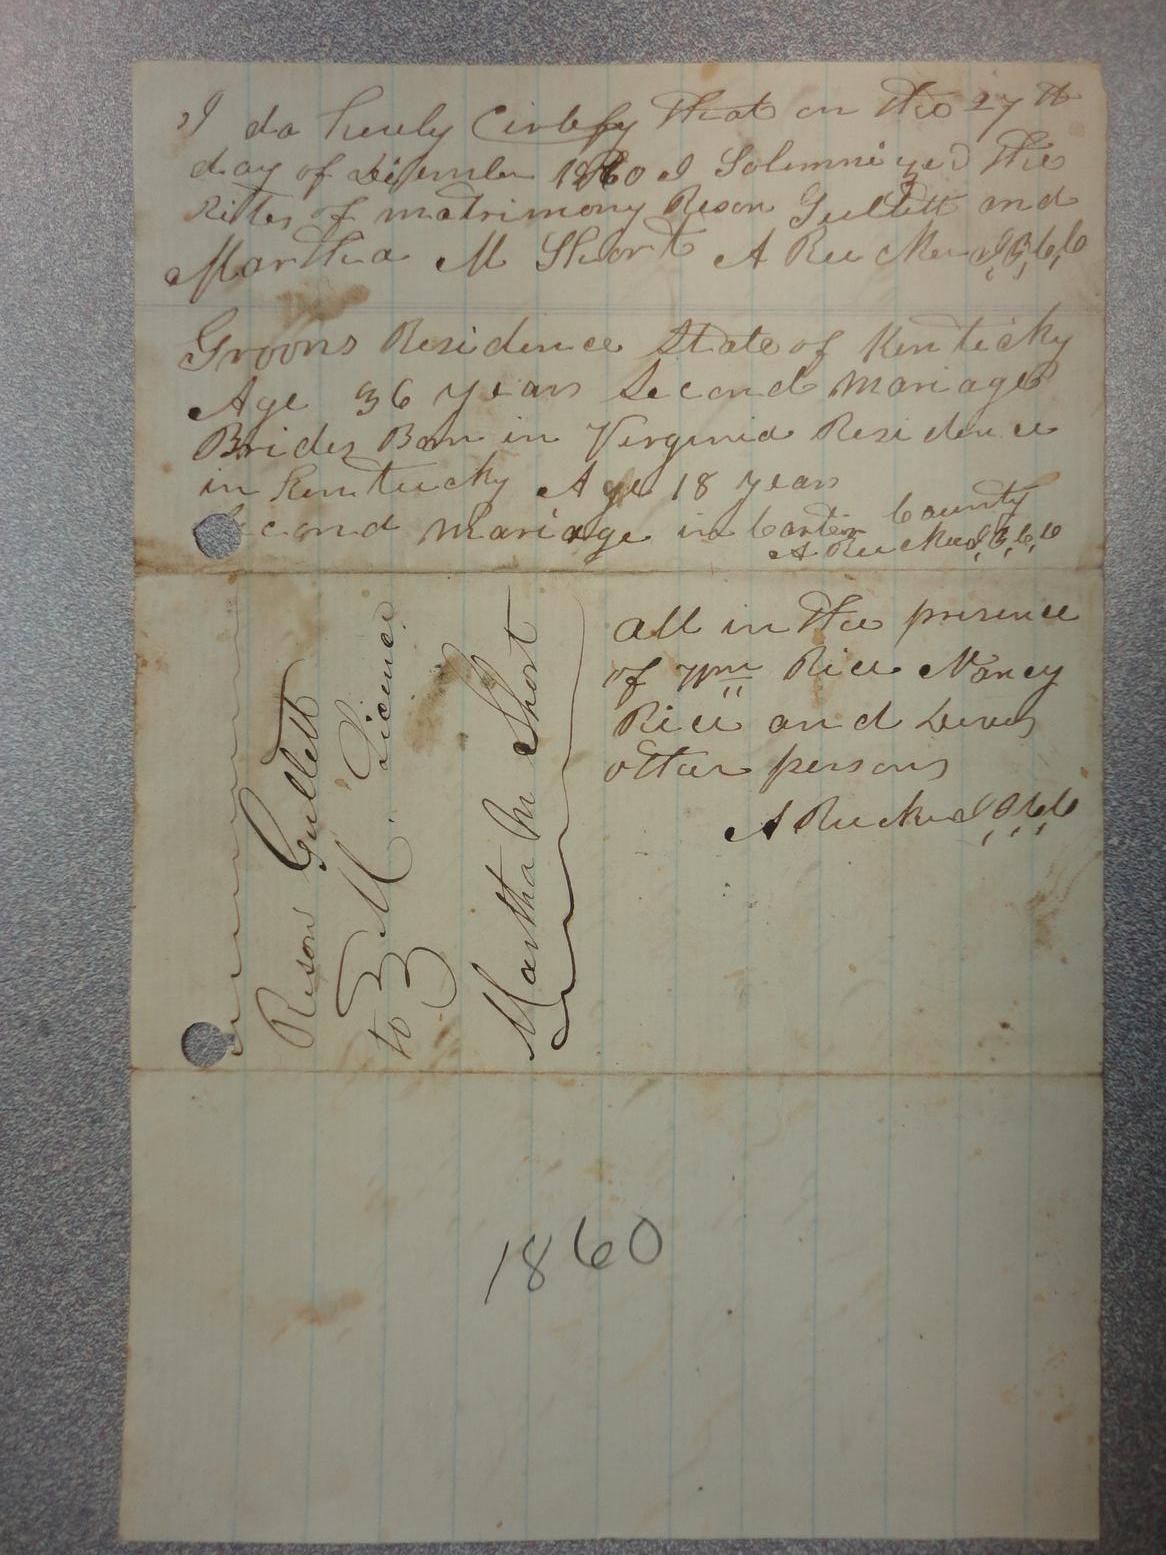 I do herely Cirtefy that on the 27th
day of Diecmber 1860 I Solemnized the
Rites of matrimony Reson Gullett and
Martha M Short A Rucker J,P,C,C
Grooms Residence State of Kenticky
Age 36 years Second Mariage
Brides Born in Verginia Residence
in Kentucky Age 18 years
econd Mariage in Carter County
A Rucker J,P,C,C
all in the presence
of Wm Rice Nancy
Rice and Severl
other persons
A Rucker J,P,C,C
Reson Gullett
to } M. Licence
Martha M Short
1860